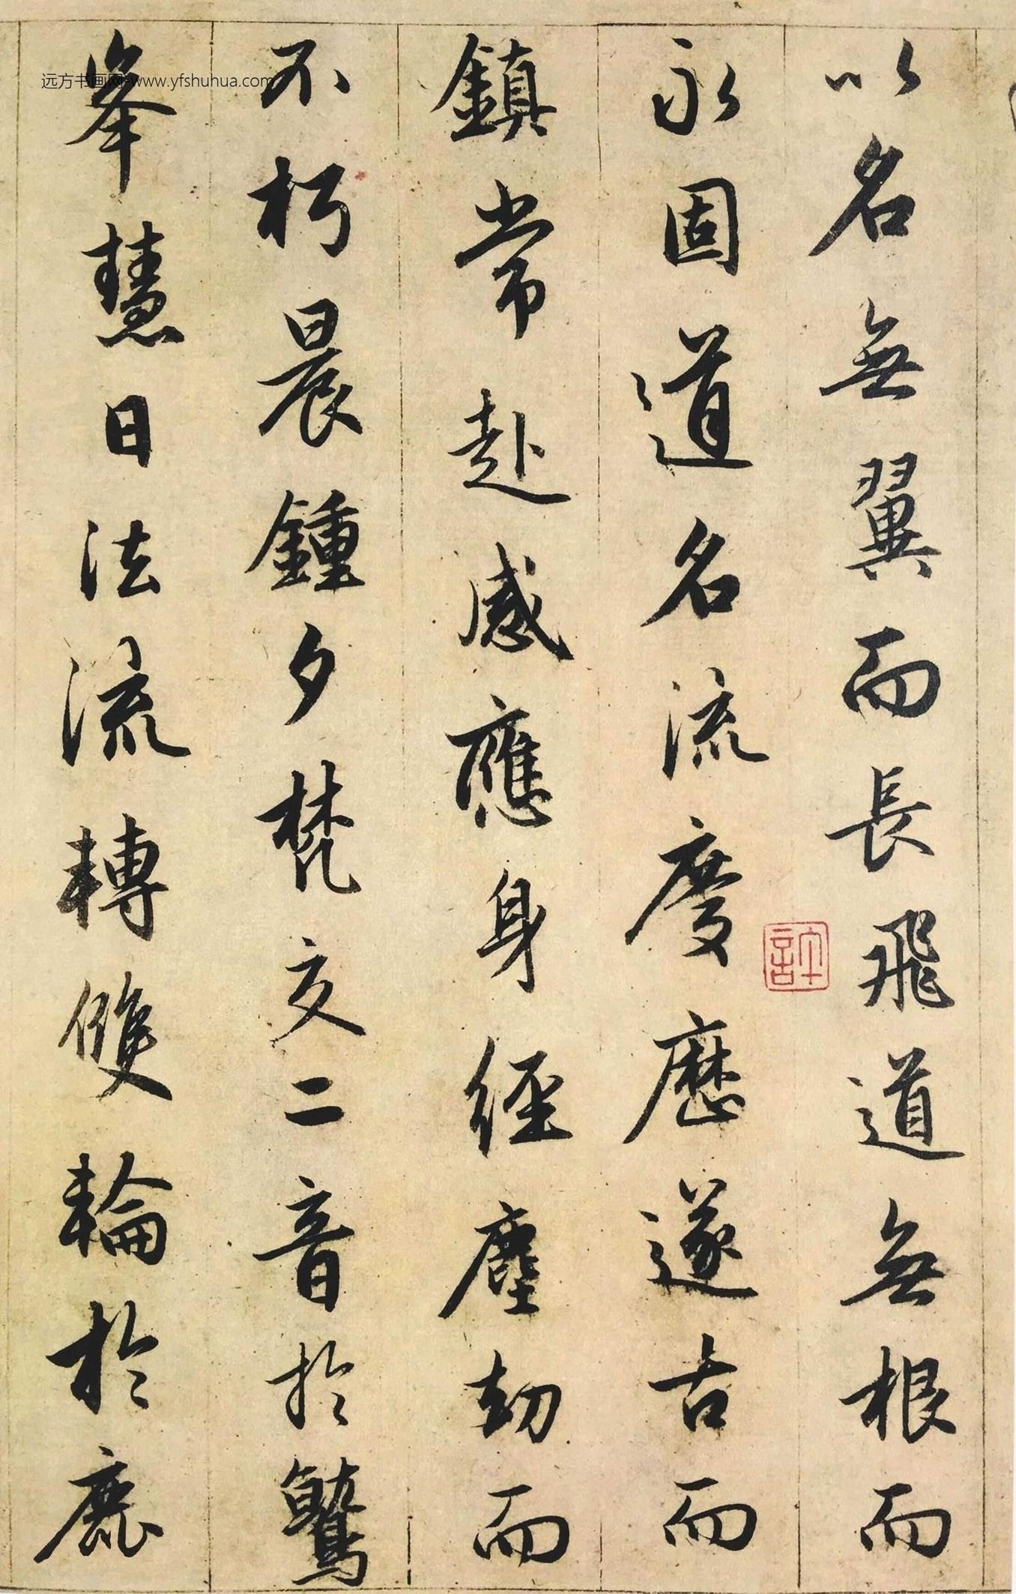 以名無翼而長飛道無根而
永固道名流慶歷遂古而
鎮常赴感應身經塵劫而
不朽晨鍾夕梵交二音於鷲
峯慧日法流轉雙輪於鹿
許
远方书画网-www.yfshuhua.com